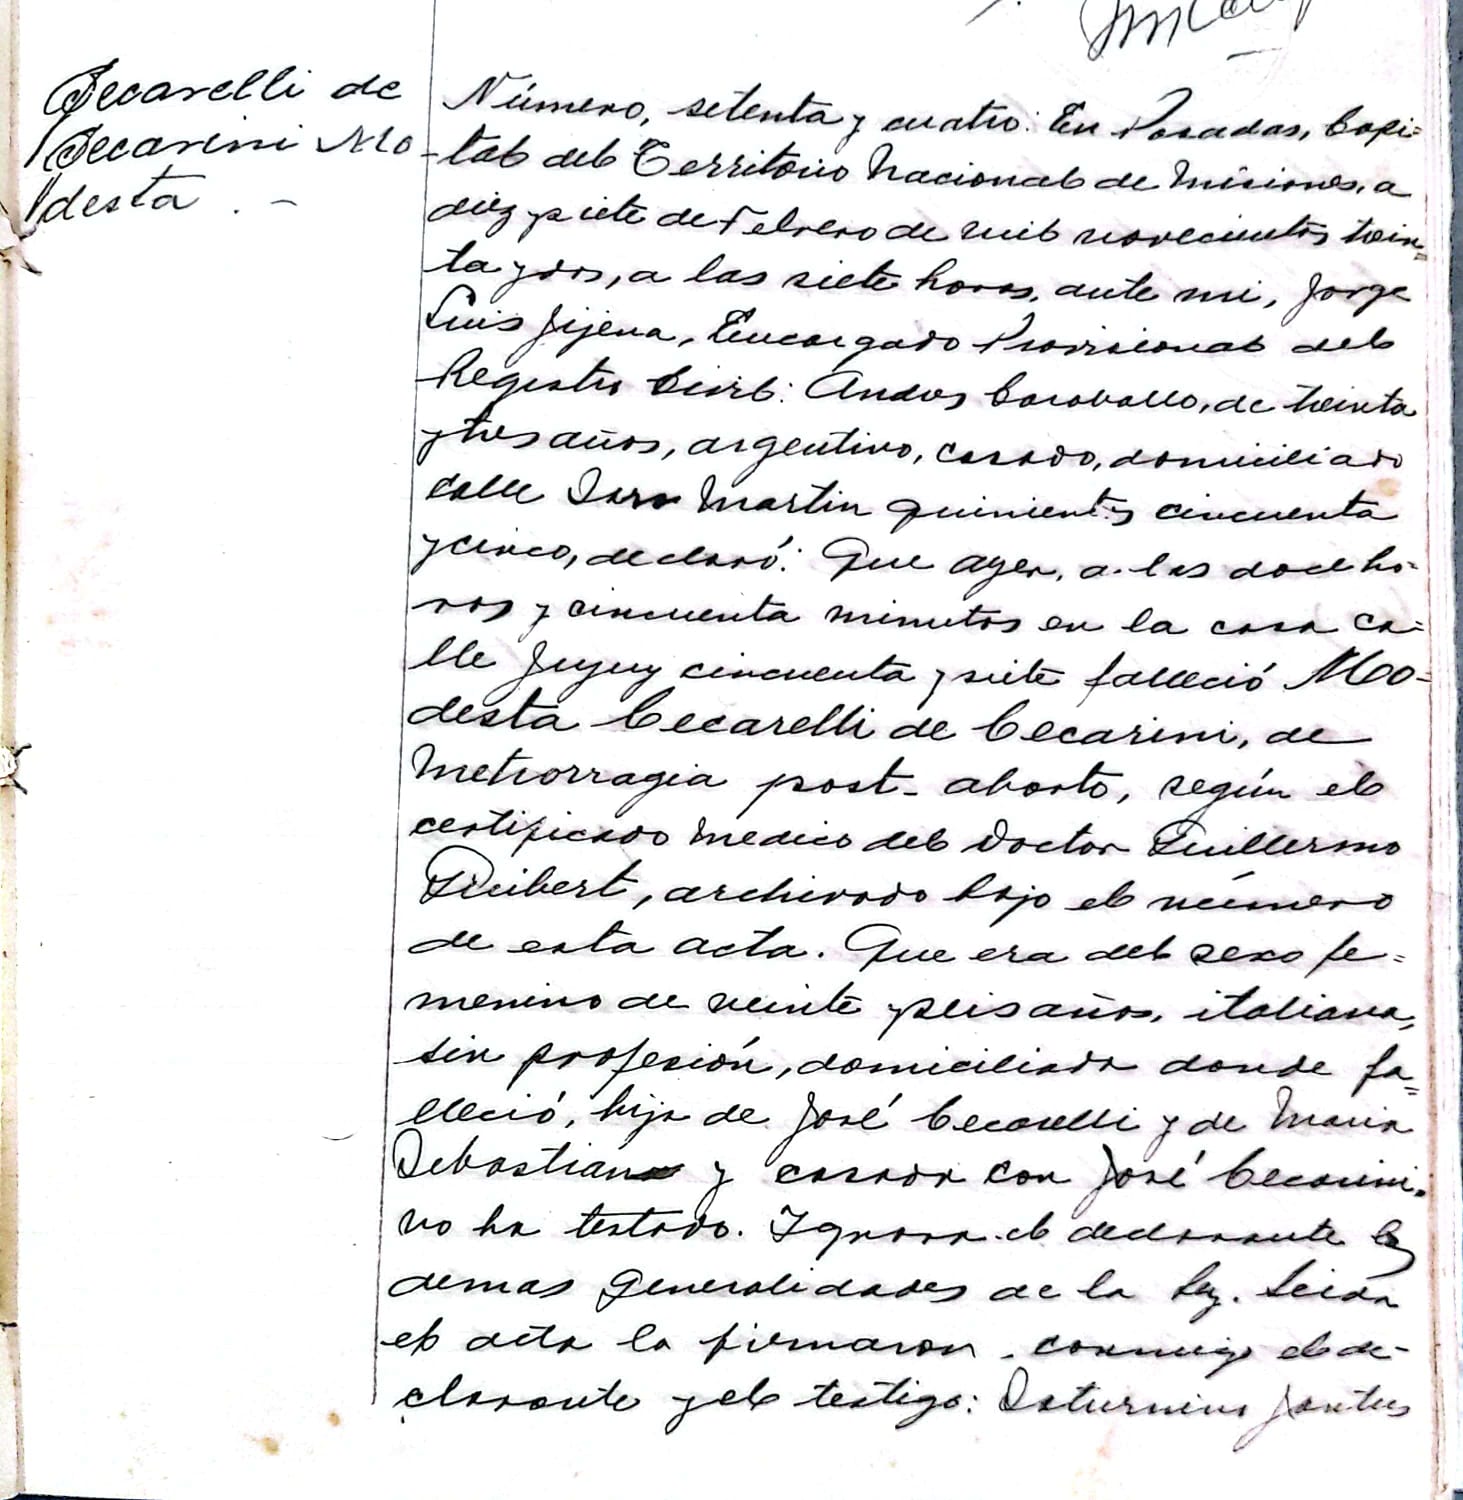 Cecarelli de
Cecarini Mo
desta. -
Número, setenta y cuatro: En Posadas, Capi=
tal del Territorio Nacional de Misiones, a
diez y siete de Febrero de mil novecientos trein=
ta y dos, a las siete horas, ante mi, Jorge
Luis Jijena, Encargado Provisional del
Registro Civil: Andres Caraballo, de treinta
y tres años, argentino, casado, domiciliado
calle San Martin quinientos cincuenta
y cinco, declaró: Que ayer, a las doce ho=
ras y cincuenta minutos en la casa ca=
lle Jujuy cincuenta y siete falleció Mo=
desta Cecarelli de Cecarini, de
Metrorragia post-aborto, según el
certificado medico del Doctor Guillermo
archivado bajo el número
de esta acta. Que era del sexo fe=
menino de veinte y seis años, italiana,
sin profesión, domiciliada donde fa=
lleció, hija de José Cecarelli y de Maria
Sebastiana y casada con José Cecarini.
no ha testado. Ignora el declarante las
demas generalidades de la ley. Leida
el acta la firmaron conmigo el de-
clarante y el testigo: Saturnino